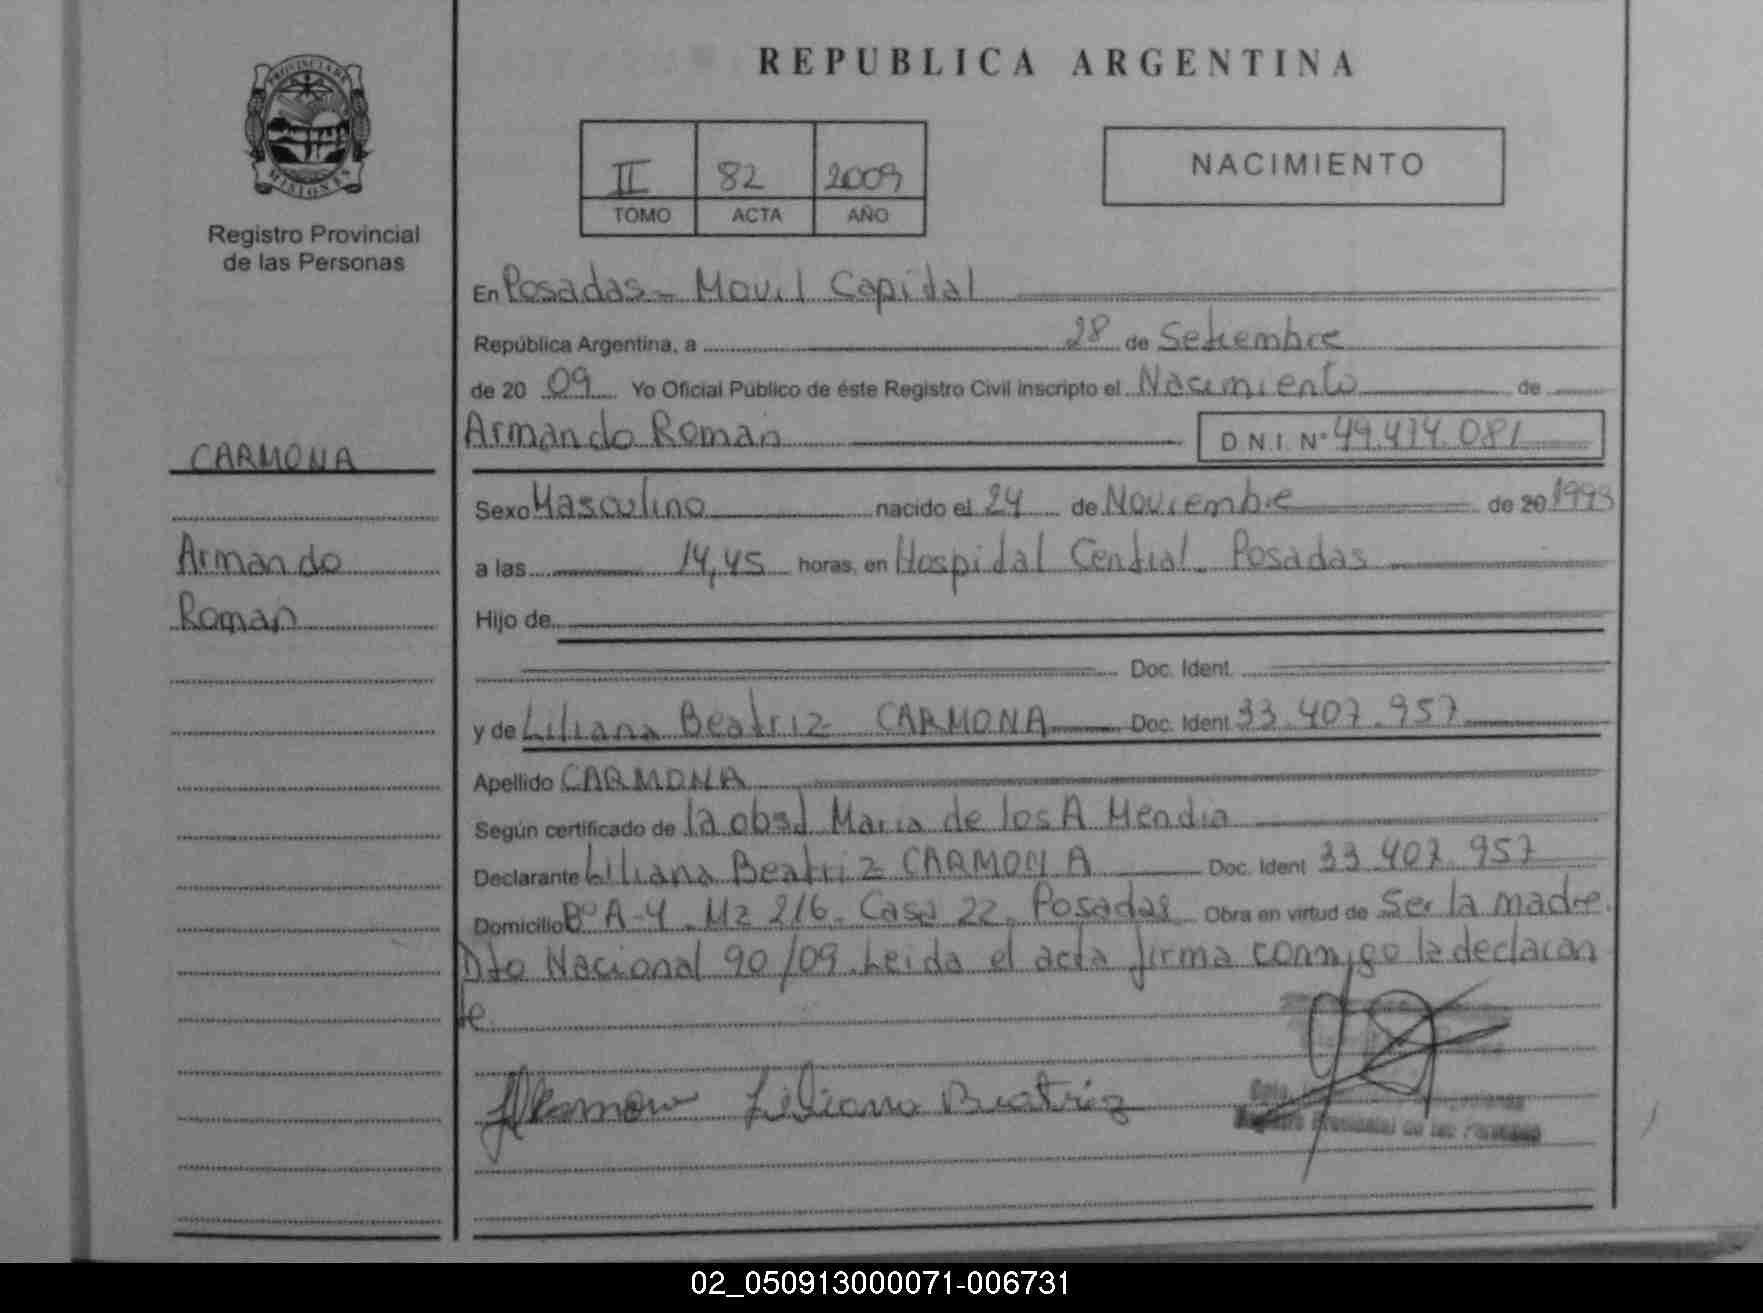 PROVINCIA DE
MISIONES
Registro Provincial
de las Personas
CARMONA
Armando
Roman
REPUBLICA ARGENTINA
II 82 2009
TOMO ACTA AÑO
NACIMIENTO
En Posadas - Movil Capital
República Argentina, a 28 de Setiembre
de 20 09 Yo Oficial Público de éste Registro Civil inscripto el Nacimiento de
Armando Roman D.N.I. Nº 49.474.081
Sexo Masculino nacido el 24 de Noviembre de 20 1993
a las 14,45 horas, en Hospital Central. Posadas
Hijo de
Doc. Ident.
y de Liliana Beatriz CARMONA Doc. Ident 33.407.957
Apellido CARMONA
Según certificado de la obst Maria de los A Mendia
Declarante Liliana Beatriz CARMONA Doc. Ident 33.407.957
Domicilio Bº A-4. Mz 216. Casa 22. Posadas Obra en virtud de Ser la madre.
Dto Nacional 90/09. Leida el acta firma conmigo la declaran
te.
Carmona Liliana Beatriz
Registro Provincial de las Personas
02_050913000071-006731